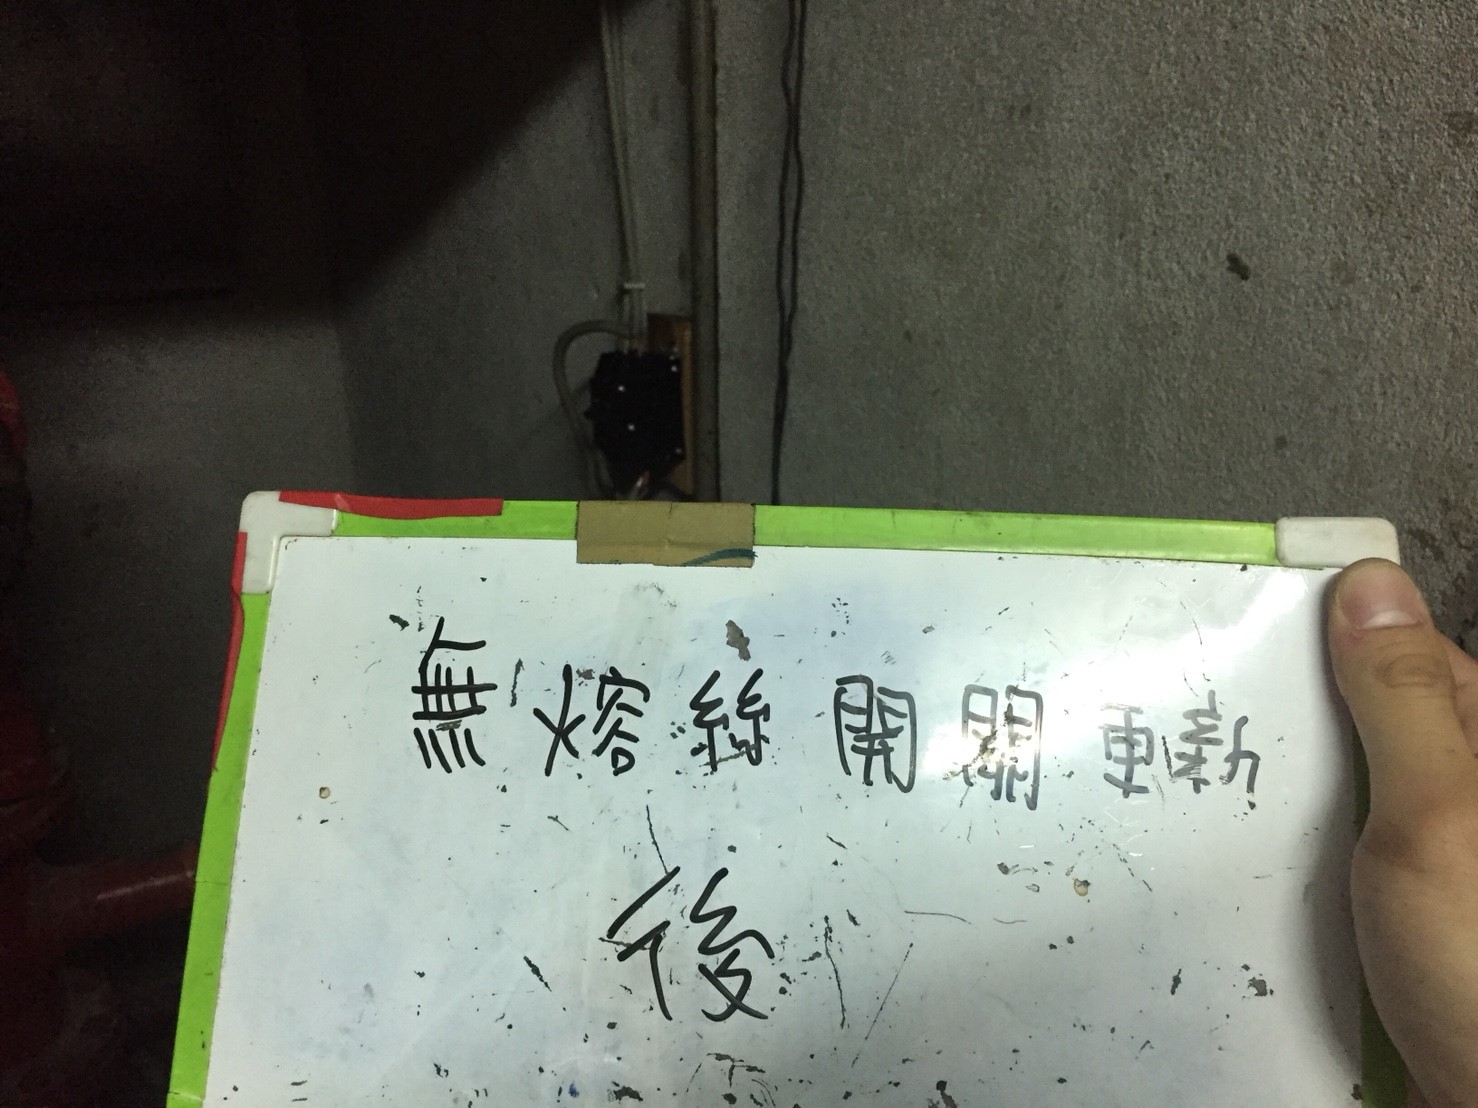 無熔絲開關更新
後